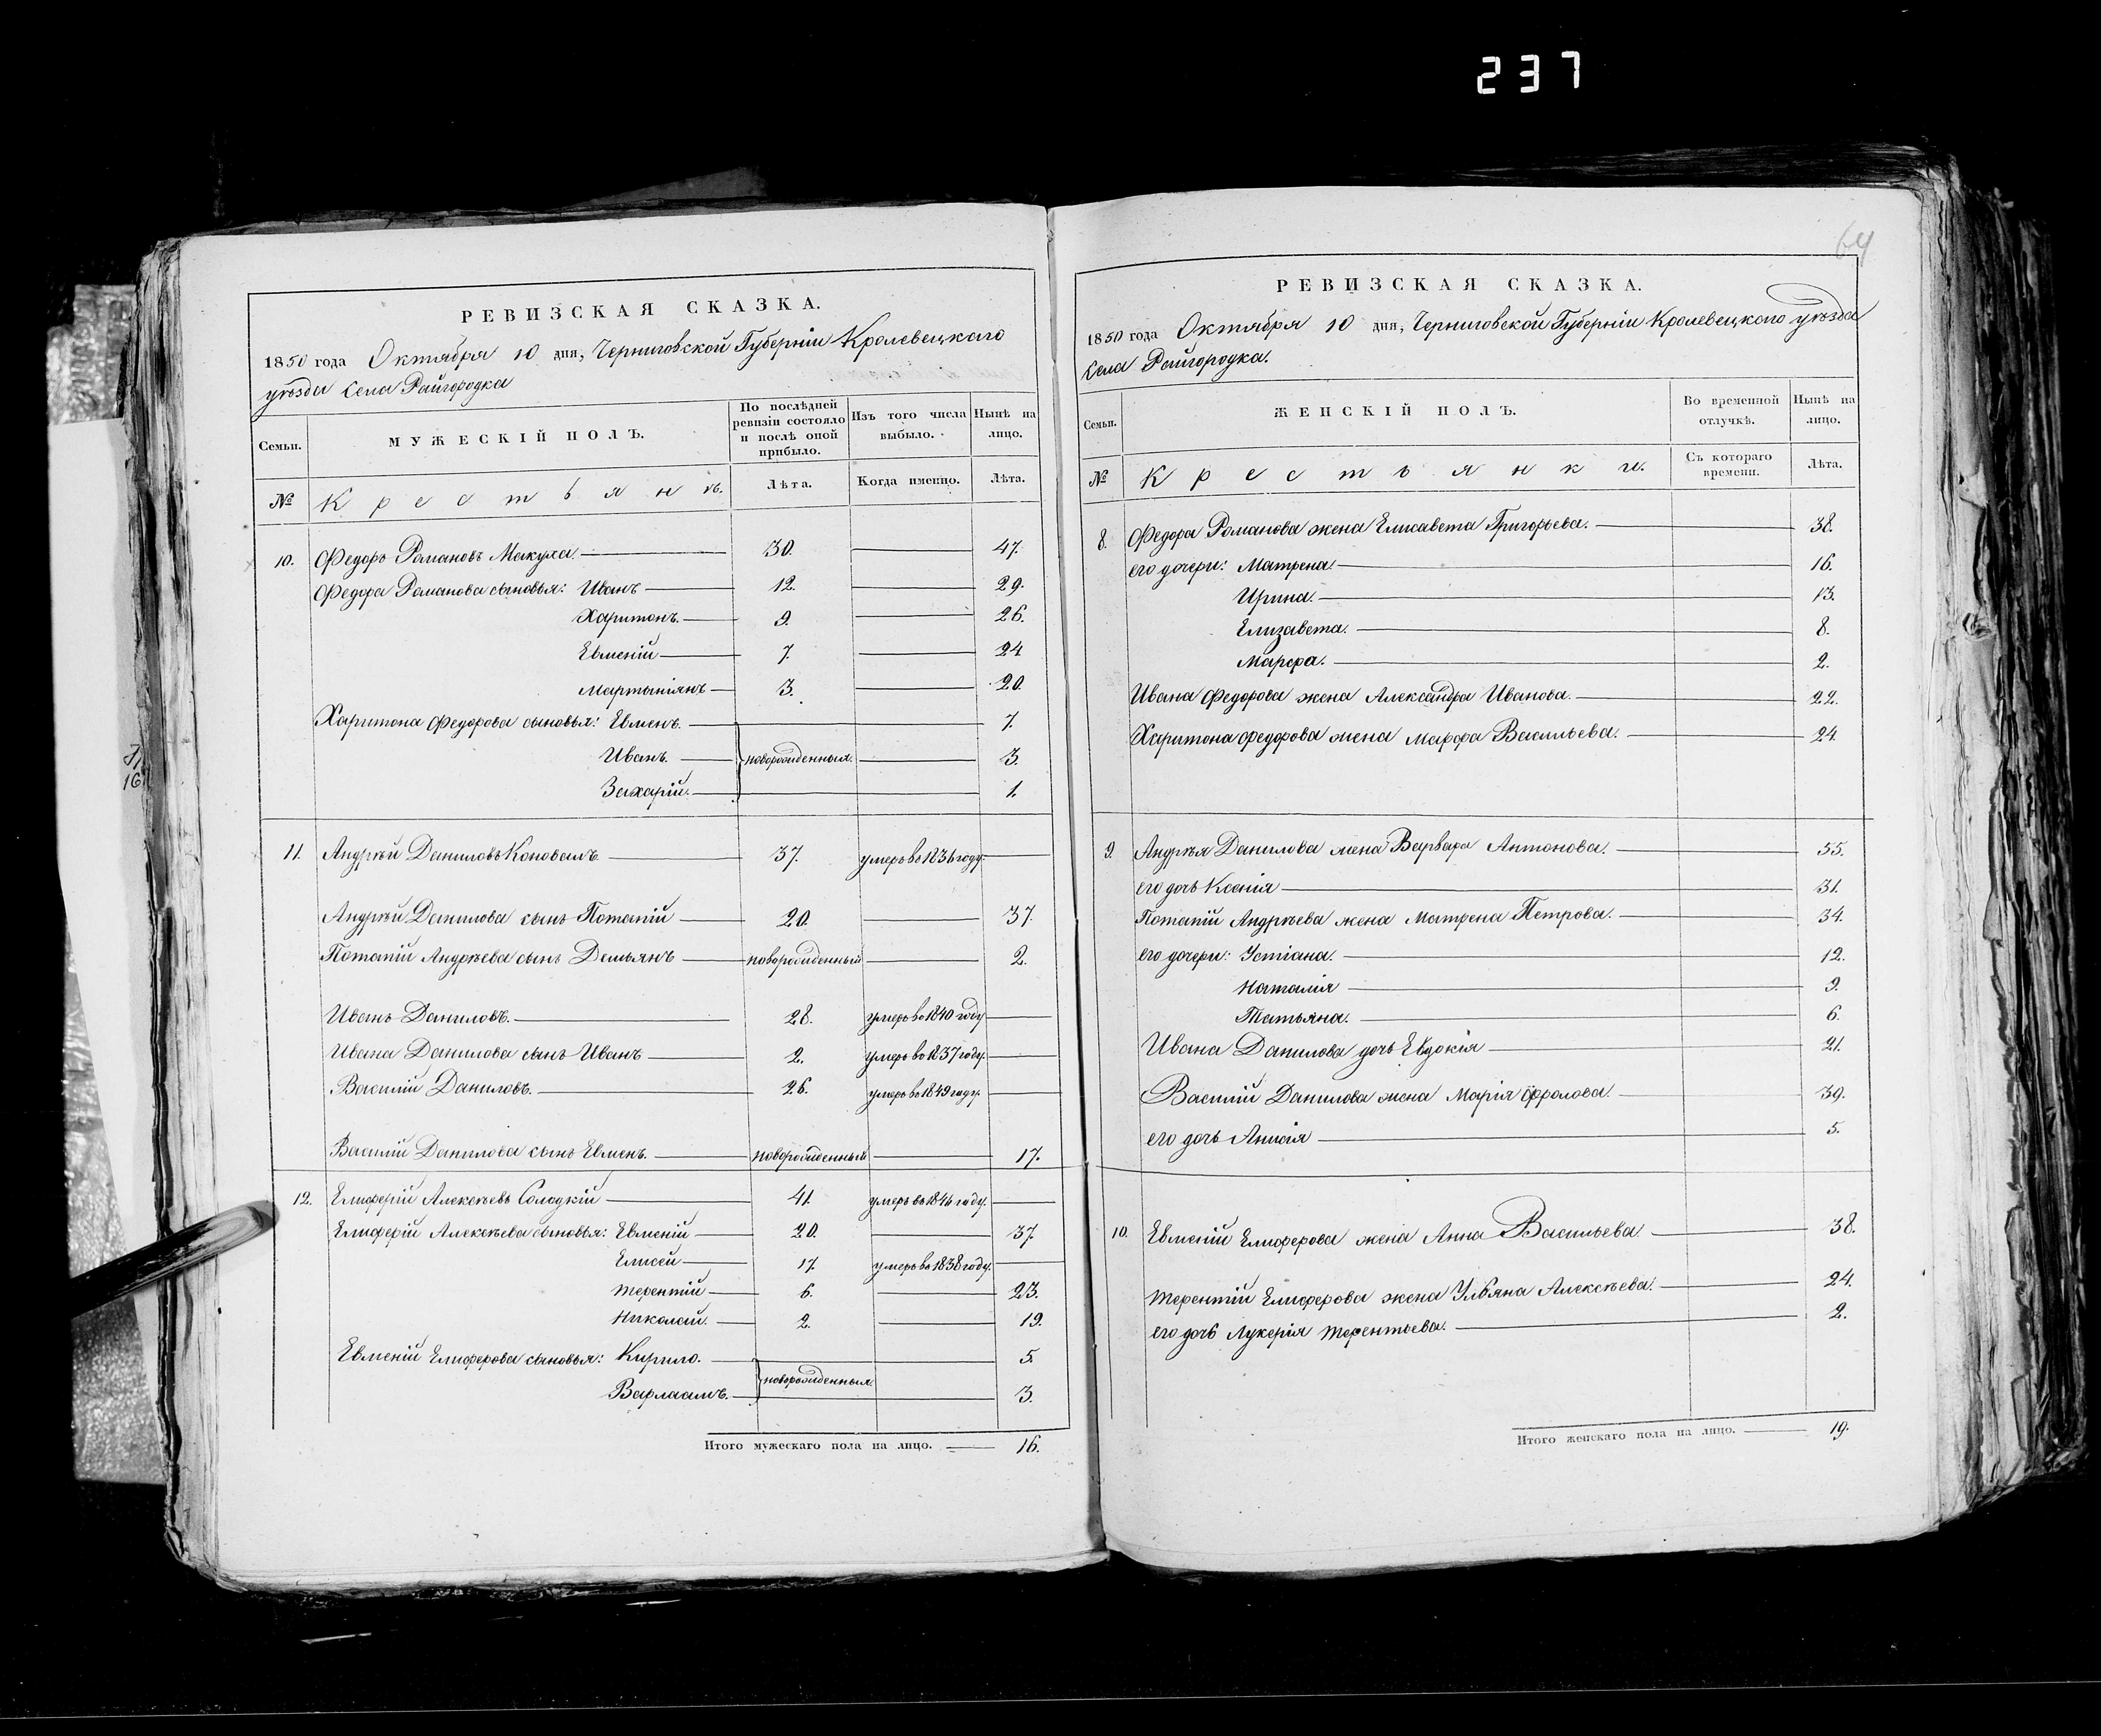 237
64
РЕВИЗСКАЯ СКАЗКА.
1850 года Октября 10 дня, Черниговской Губерніи Кролевецкаго
уѣзда Села Райгородка
Семьи.
МУЖЕСКІЙ ПОЛЪ.
По послѣдней ревизіи состояло и послѣ оной прибыло.
Изъ того числа выбыло.
Нынѣ на лицо.
№ Крестьянъ. Лѣта. Когда именно. Лѣта.
10. Федоръ Романовъ Макуха. 30. 47.
Федора Романова сыновья: Иванъ 12. 29.
Харитонъ. 9. 26.
Евменій 7. 24
Мартыніянъ 3. 20.
Харитона Федорова сыновья: Евменъ. 7.
Иванъ. новорожденныя. 3.
Захарій. 1.
11. Андрѣй Даниловъ Коновалъ 37. умеръ во 1836 году.
Андрѣй Данилова сынъ Потапій 20. 37.
Потапій Андрѣева сынъ Демьянъ новорожденный 2.
Иванъ Даниловъ. 28. умеръ во 1840 году
Ивана Данилова сынъ Иванъ 2. умеръ во 1837 году.
Василій Даниловъ. 26. умеръ во 1849 году.
Василій Данилова сынъ Евменъ. новорожденный 17.
12. Елиферій Алексѣевъ Солодкій 41. умеръ въ 1846 году.
Елиферій Алексѣева сыновья: Евменій 20. 37.
Елисей 17. умеръ во 1838 году.
Терентій 6. 23.
Николай. 2. 19.
Евменій Елиферова сыновья: Кирило. 5.
новорожденныя.
Варлаамъ. 3.
Итого мужескаго пола на лицо. 16.
РЕВИЗСКАЯ СКАЗКА.
1850 года Октября 10 дня, Черниговской Губерніи Кролевецкаго уѣзда
Села Райгородка.
Семьи.
ЖЕНСКІЙ ПОЛЪ.
Во временной отлучкѣ.
Нынѣ на лицо.
№ Крестьянки. Съ котораго времени. Лѣта.
8. Федора Романова жена Елисавета Григорьева. 38.
его дочери: Матрена. 16.
Ирина. 13.
Елизавета. 8.
Марфа. 2.
Ивана Федорова жена Александра Иванова. 22.
Харитона Федорова жена Марфа Васильева. 24.
9. Андрѣя Данилова жена Варвара Антонова. 55.
его дочь Ксенія 31.
Потапій Андрѣева жена Матрена Петрова. 34.
его дочери: Устіана. 12.
Наталія 9.
Татьяна. 6.
Ивана Данилова дочь Евдокія 21.
Василій Данилова жена Марія Фролова. 39.
его дочь Анисія 5.
10. Евменій Елиферова жена Анна Васильева 38.
Терентій Елиферова жена Ульяна Алексѣева. 24.
его дочь Лукерія Терентьева. 2.
Итого женскаго пола на лицо. 19.